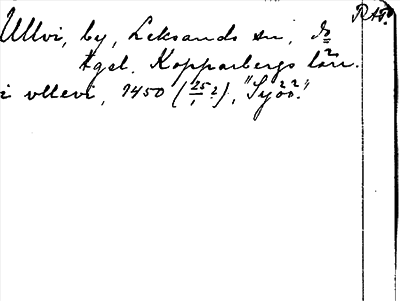 RAp.
Ullvi, by, Leksands sn, do
tgsl. Kopparbergs län.
i vllevi, 1450 (25/1 ?), "Syöö."